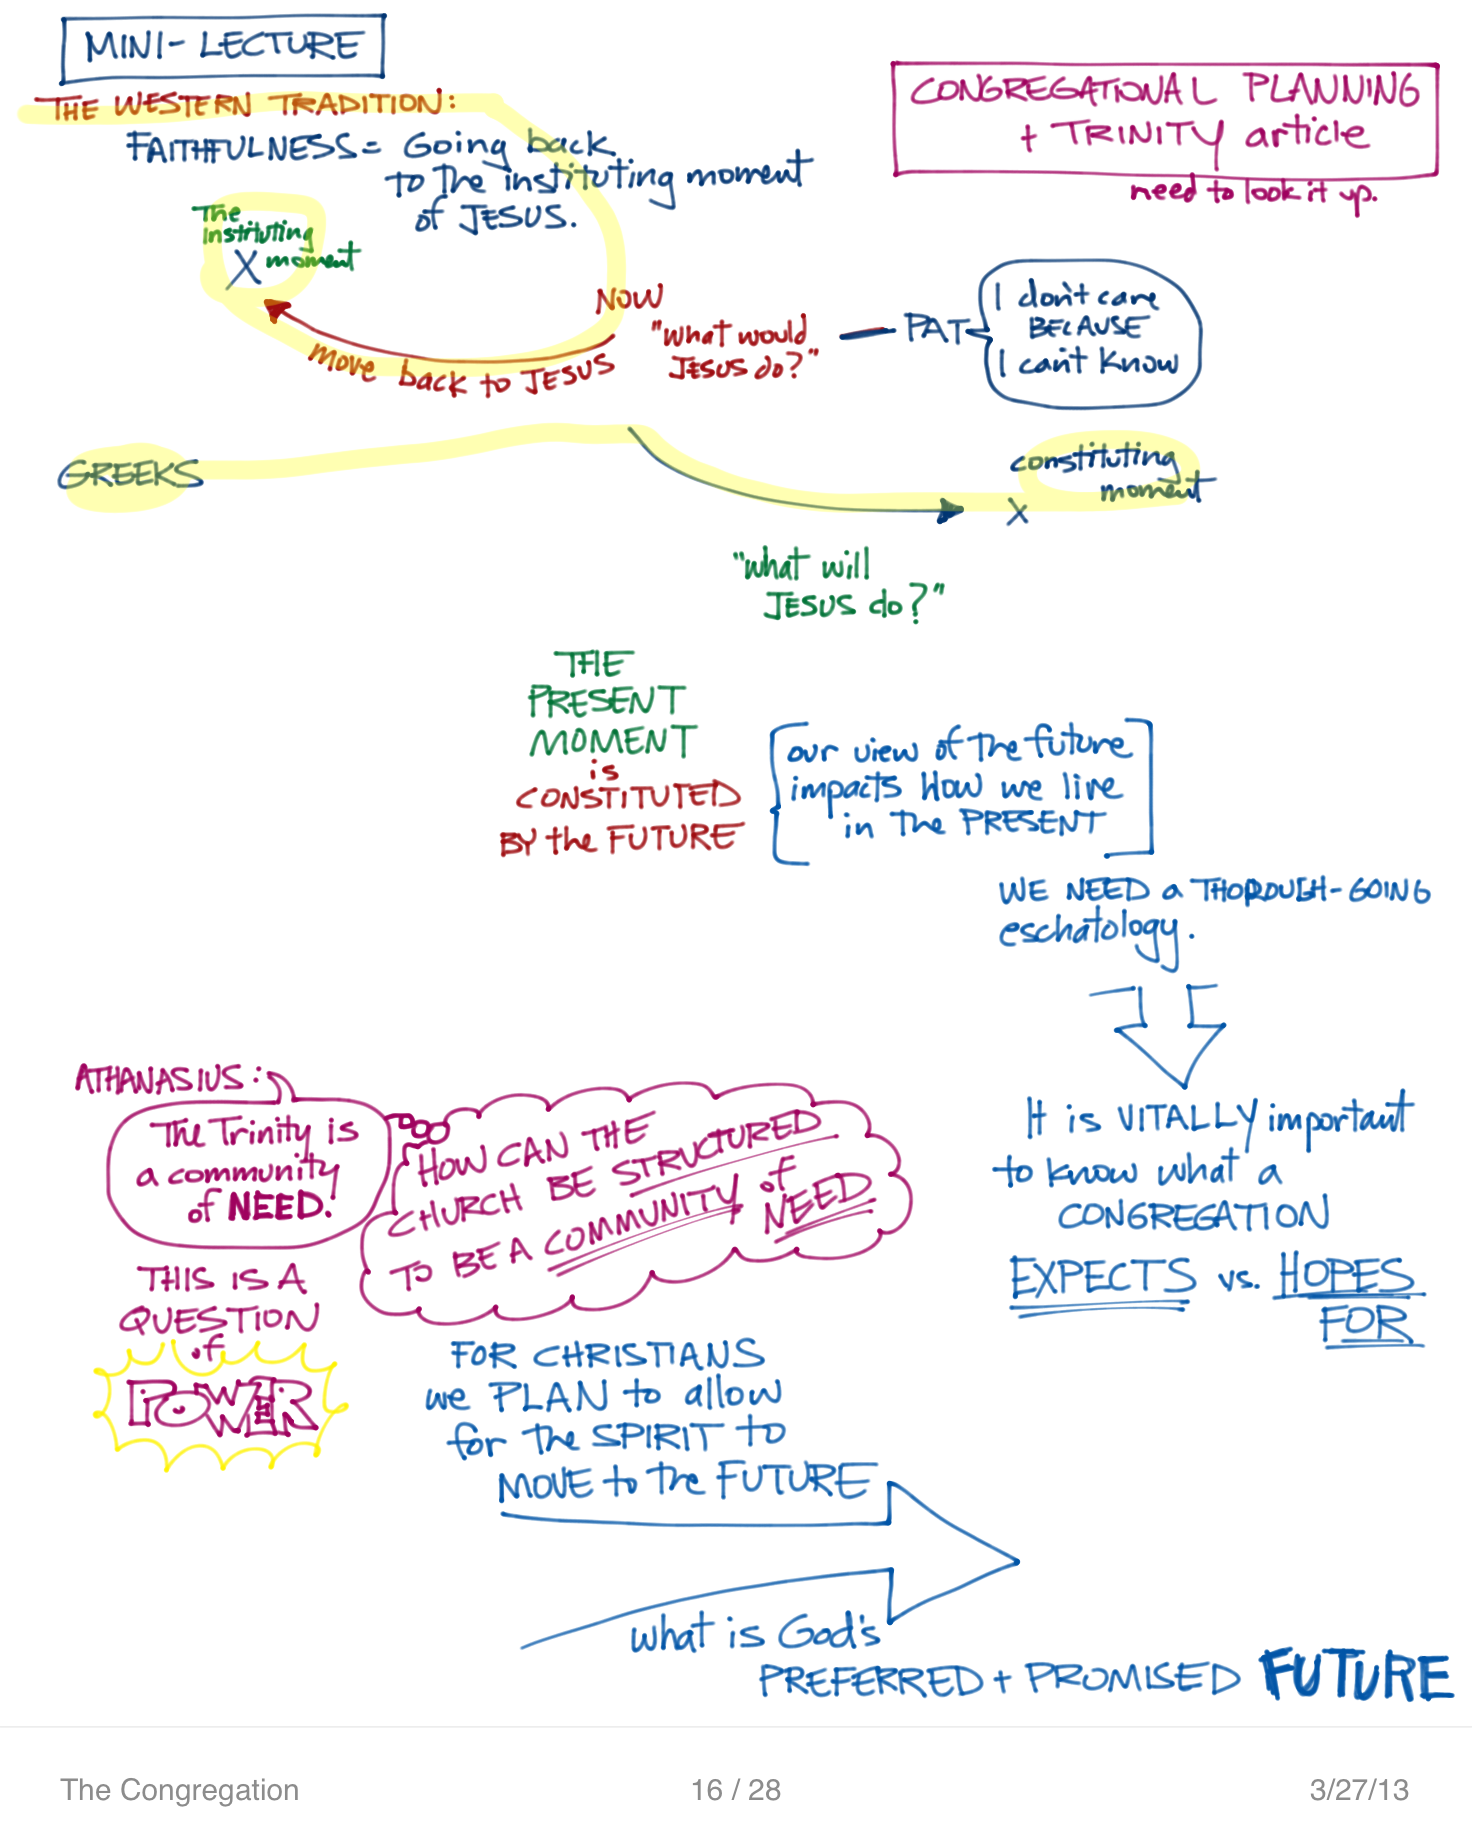 MINI-LECTURE
THE WESTERN TRADITION:
FAITHFULNESS = Going back
to the instituting moment
of JESUS.
CONGREGATIONAL PLANNING
+ TRINITY article
need to look it up.
The
instituting
X moment
NOW
move back to JESUS
"what would
JESUS do?"
— PAT
I don't care
BECAUSE
I can't know
GREEKS
constituting
moment
X
"what will
JESUS do?"
THE
PRESENT
MOMENT
is
CONSTITUTED
BY the FUTURE
our view of the future
impacts How we live
in the PRESENT
WE NEED a THOROUGH-GOING
eschatology.
It is VITALLY important
to know what a
CONGREGATION
EXPECTS vs. HOPES
FOR
ATHANASIUS:
The Trinity is
a community
of NEED.
HOW CAN THE
CHURCH BE STRUCTURED
TO BE A COMMUNITY of
NEED
THIS IS A
QUESTION
of
POWER
FOR CHRISTIANS
we PLAN to allow
for the SPIRIT to
MOVE to the FUTURE
what is God's
PREFERRED + PROMISED FUTURE
The Congregation
16 / 28
3/27/13